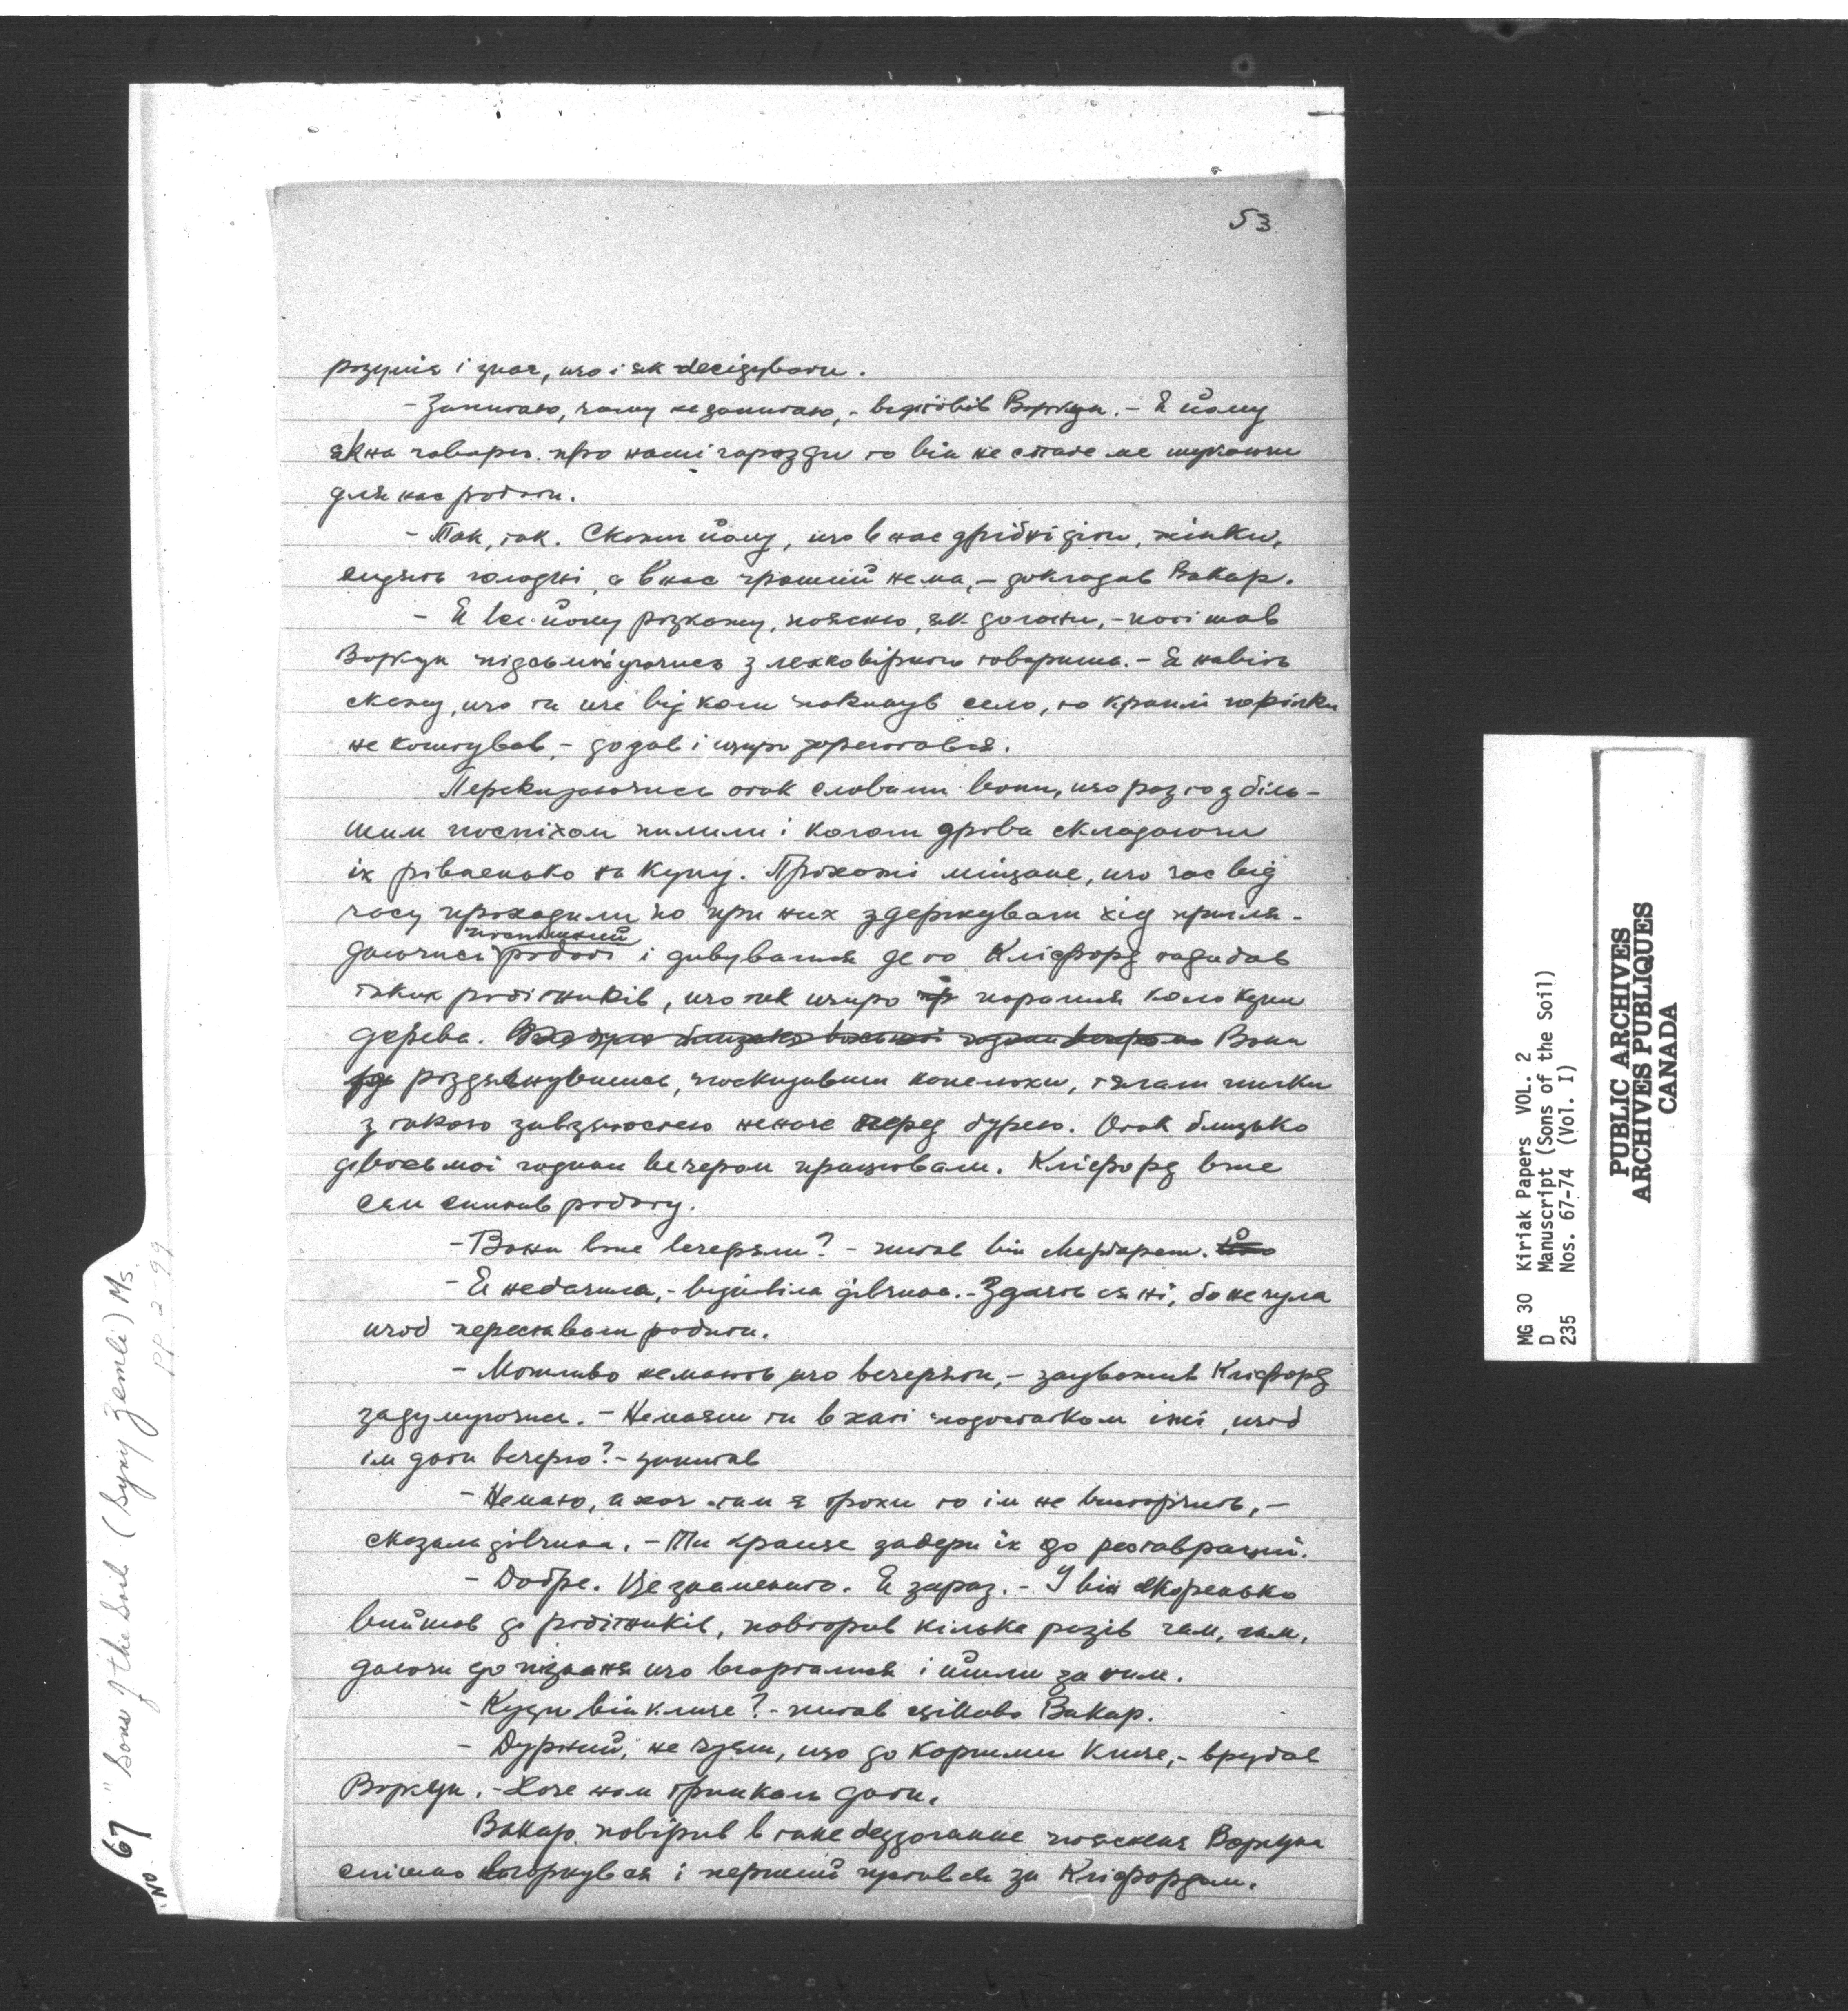 53
розуміє і знає, що і як бесідувати.
- Запитаю, чому не запитаю, - відповів Воркун. - Я йому
як на говорю про наші гаразди то він не стане ме шукаючи
для нас роботи.
- Так, так. Скажи йому, що в нас дрібні діти, жінки,
сидять голодні, а в нас грошей нема, - докладав Вакар.
- Я все йому розкажу, поясню, як догожи, - потішав
Воркун підсьміхуючись з легковірного товариша. - Я навіть
скажу, що ти ще від коли покинув село, то краплі горілки
не коштував, - додав і щиро зареготався.
Перекидаючись отак словами вони, що раз то з біль-
шим поспіхом пилили і кололи дрова складаючи
їх рівненько на купу. Прохожі міщане, що час від
часу проходили по при них здержували хід пригля-
поспішній
даючись роботі і дивувалися де то Кліфорд надибав
таких робітників, що так щиро поралися коло купи
дерева. Вони
роздягнувшись, поскидавши капелюхи, тягали пилки
з такою завзятостею неначе перед бурею. Отак близько
до восьмої години вечером працювали. Кліфорд вже
сам спинив роботу.
- Вони вже вечеряли? - питав він Марґарет.
- Я не бачила, - відповіла дівчина. - Здаєть ся ні, бо не чула
щоб переставали робити.
- Можливо не мають що вечеряти, - зауважив Кліфорд
задумуючись. - Не маєш ти в хаті подостатком їжі, щоб
їм дати вечерю? - запитав
- Не маю, а хоч там є трохи то їм не вистарчить, -
сказала дівчина. - Ти краще забери їх до реставрації.
- Добре. Це знаменито. Я зараз. - І він скоренько
вийшов до робітників, повторив кілька разів чам, чам,
даючи до пізнаня що вгорталися і йшли за ним.
- Куди він кличе? - питав цікаво Вакар.
- Дурний, не чуєш, що до коршми кличе, - врубав
Воркун. - Хоче нам тринкель дати.
Вакар повірив в таке бездоганне пояснення Воркуна
спішно вгорнувся і перший пустився за Кліфордом.
NO. 67 "Sons of the Soil (Syny Zemli) Ms.
pp. 2-99
MG 30 Kiriak Papers VOL. 2
D Manuscript (Sons of the Soil)
235 Nos. 67-74 (Vol. I)
PUBLIC ARCHIVES
ARCHIVES PUBLIQUES
CANADA